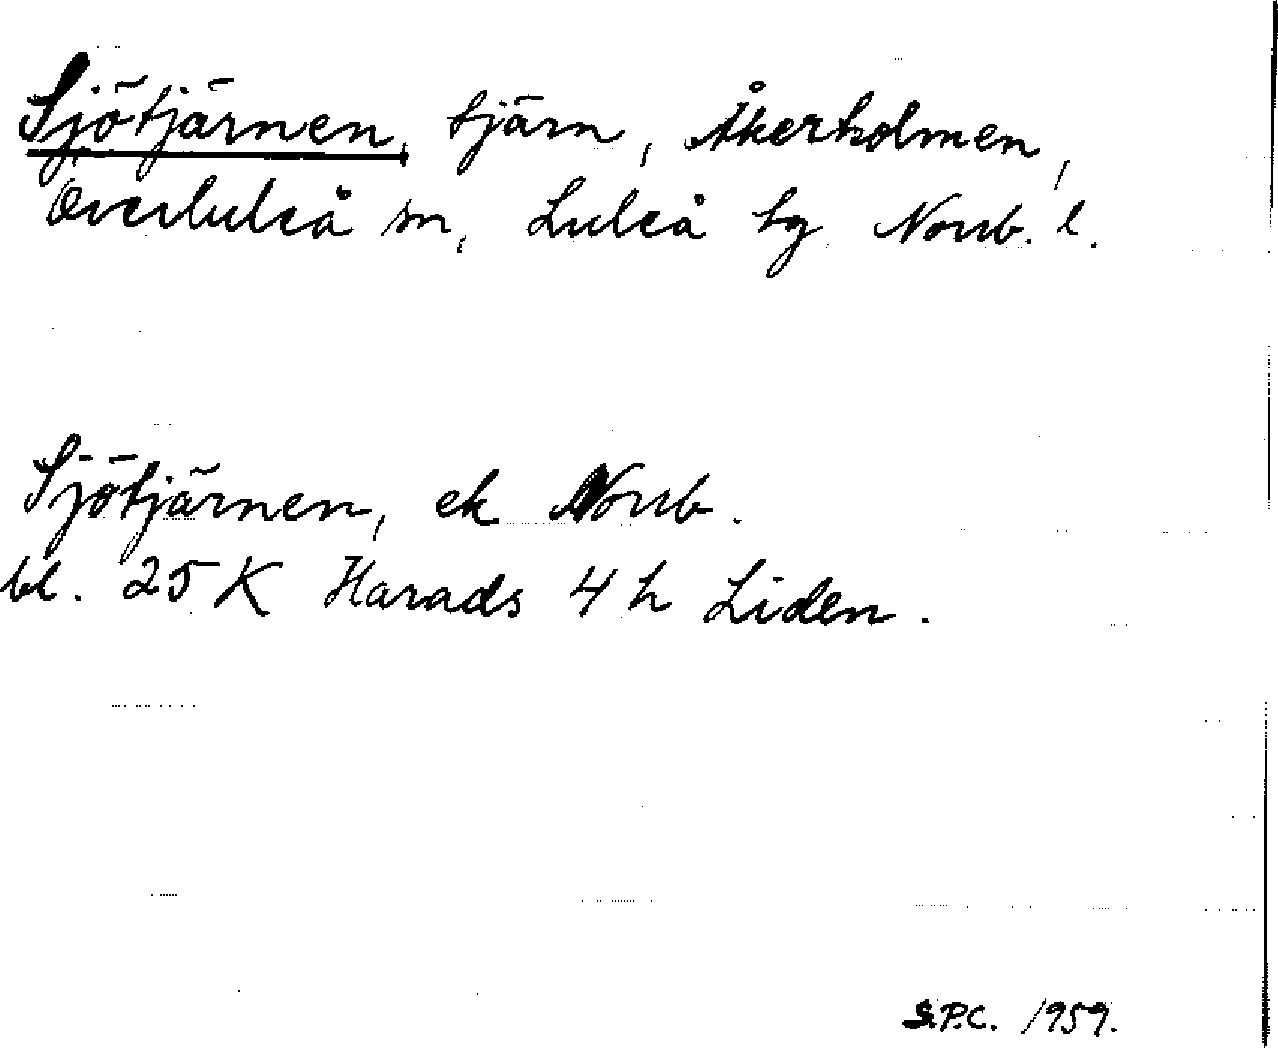 Sjötjärnen, tjärn, Åkerholmen,
Överluleå sn, Luleå tg Norrb. l.
Sjötjärnen, ek Norrb.
bl. 25 K Harads 4 h Liden.
S.P.C. 1959.